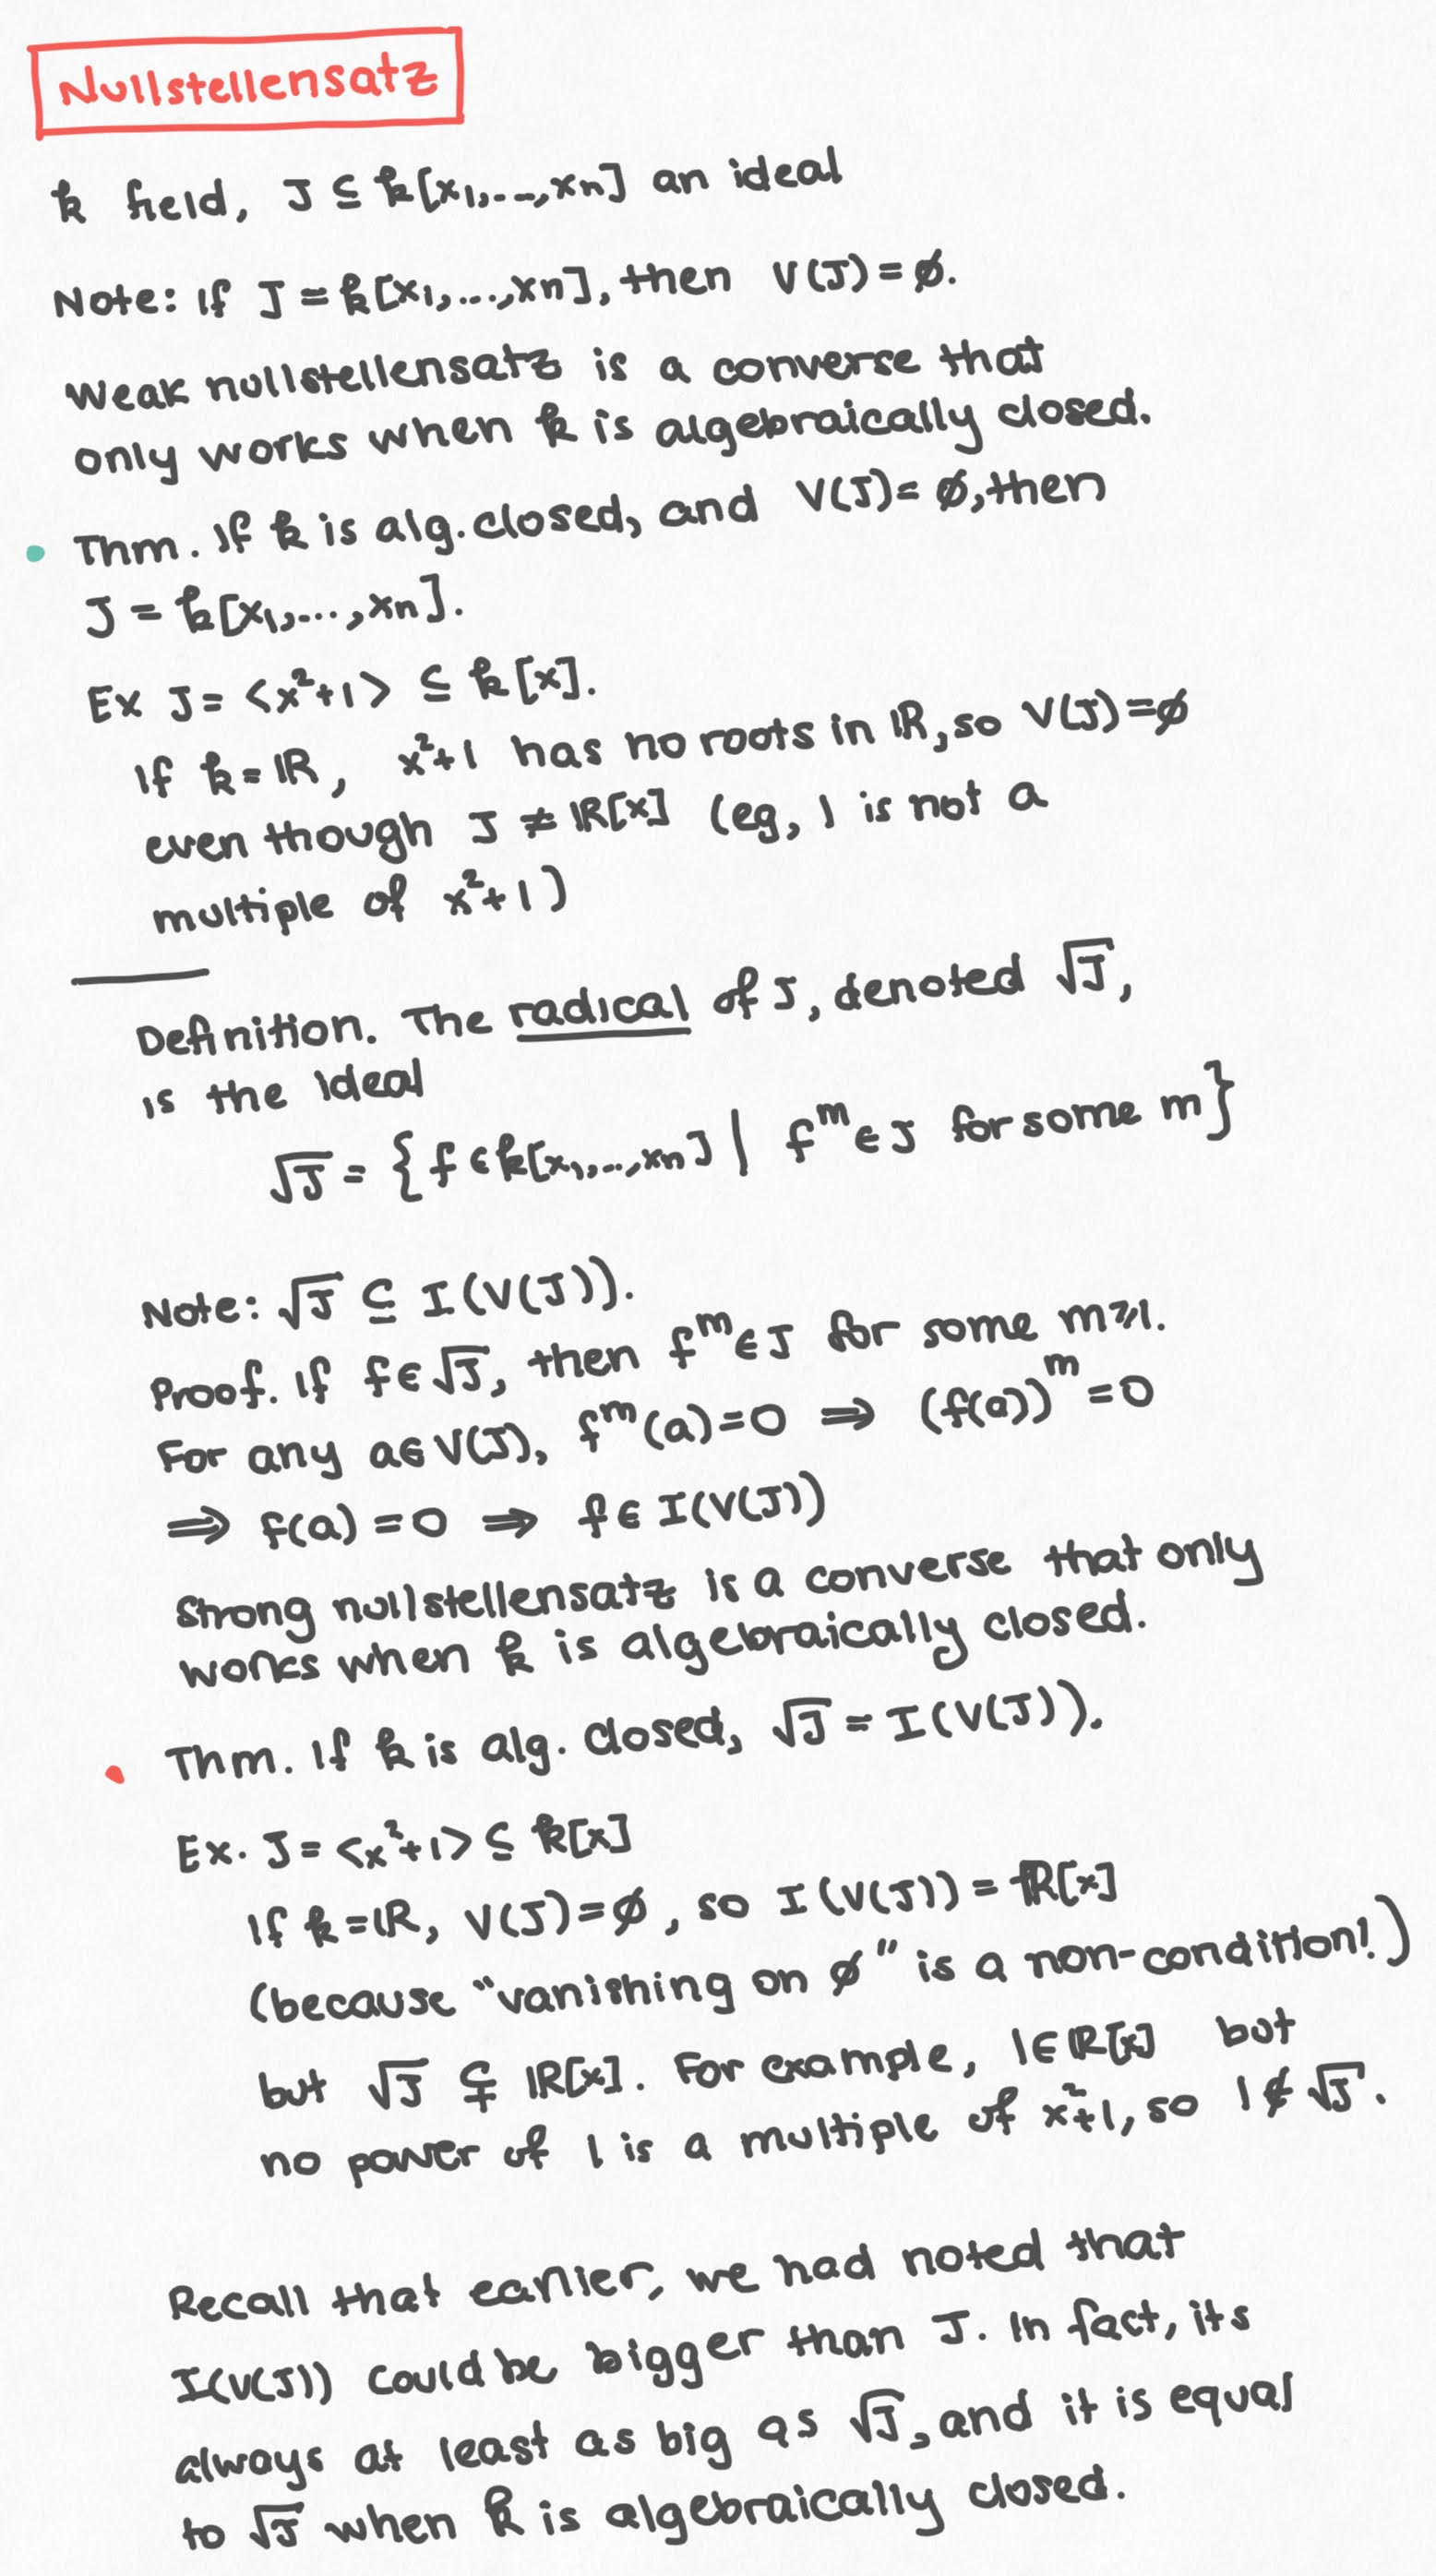 Nullstellensatz
k field, J ⊆ k[x₁,...,xn] an ideal
Note: If J = k[x₁,...,xn], then V(J) = ∅.
Weak nullstellensatz is a converse that
only works when k is algebraically closed.
• Thm. If k is alg. closed, and V(J) = ∅, then
J = k[x₁,...,xn].
Ex J = <x²+1> ⊆ k[x].
If k = ℝ, x²+1 has no roots in ℝ, so V(J) = ∅
even though J ≠ ℝ[x] (eg, 1 is not a
multiple of x²+1)
Definition. The radical of J, denoted √J,
is the ideal
√J = {f ∈ k[x₁,...,xn] | f^m ∈ J for some m}
Note: √J ⊆ I(V(J)).
Proof. If f ∈ √J, then f^m ∈ J for some m⩾1.
For any a ∈ V(J), f^m(a) = 0 ⇒ (f(a))^m = 0
⇒ f(a) = 0 ⇒ f ∈ I(V(J))
Strong nullstellensatz is a converse that only
works when k is algebraically closed.
• Thm. If k is alg. closed, √J = I(V(J)).
Ex. J = <x²+1> ⊆ k[x]
If k = ℝ, V(J) = ∅, so I(V(J)) = ℝ[x]
(because "vanishing on ∅" is a non-condition!)
but √J ⊊ ℝ[x]. For example, 1 ∈ ℝ[x] but
no power of 1 is a multiple of x²+1, so 1 ∉ √J.
Recall that earlier, we had noted that
I(V(J)) could be bigger than J. In fact, its
always at least as big as √J, and it is equal
to √J when k is algebraically closed.